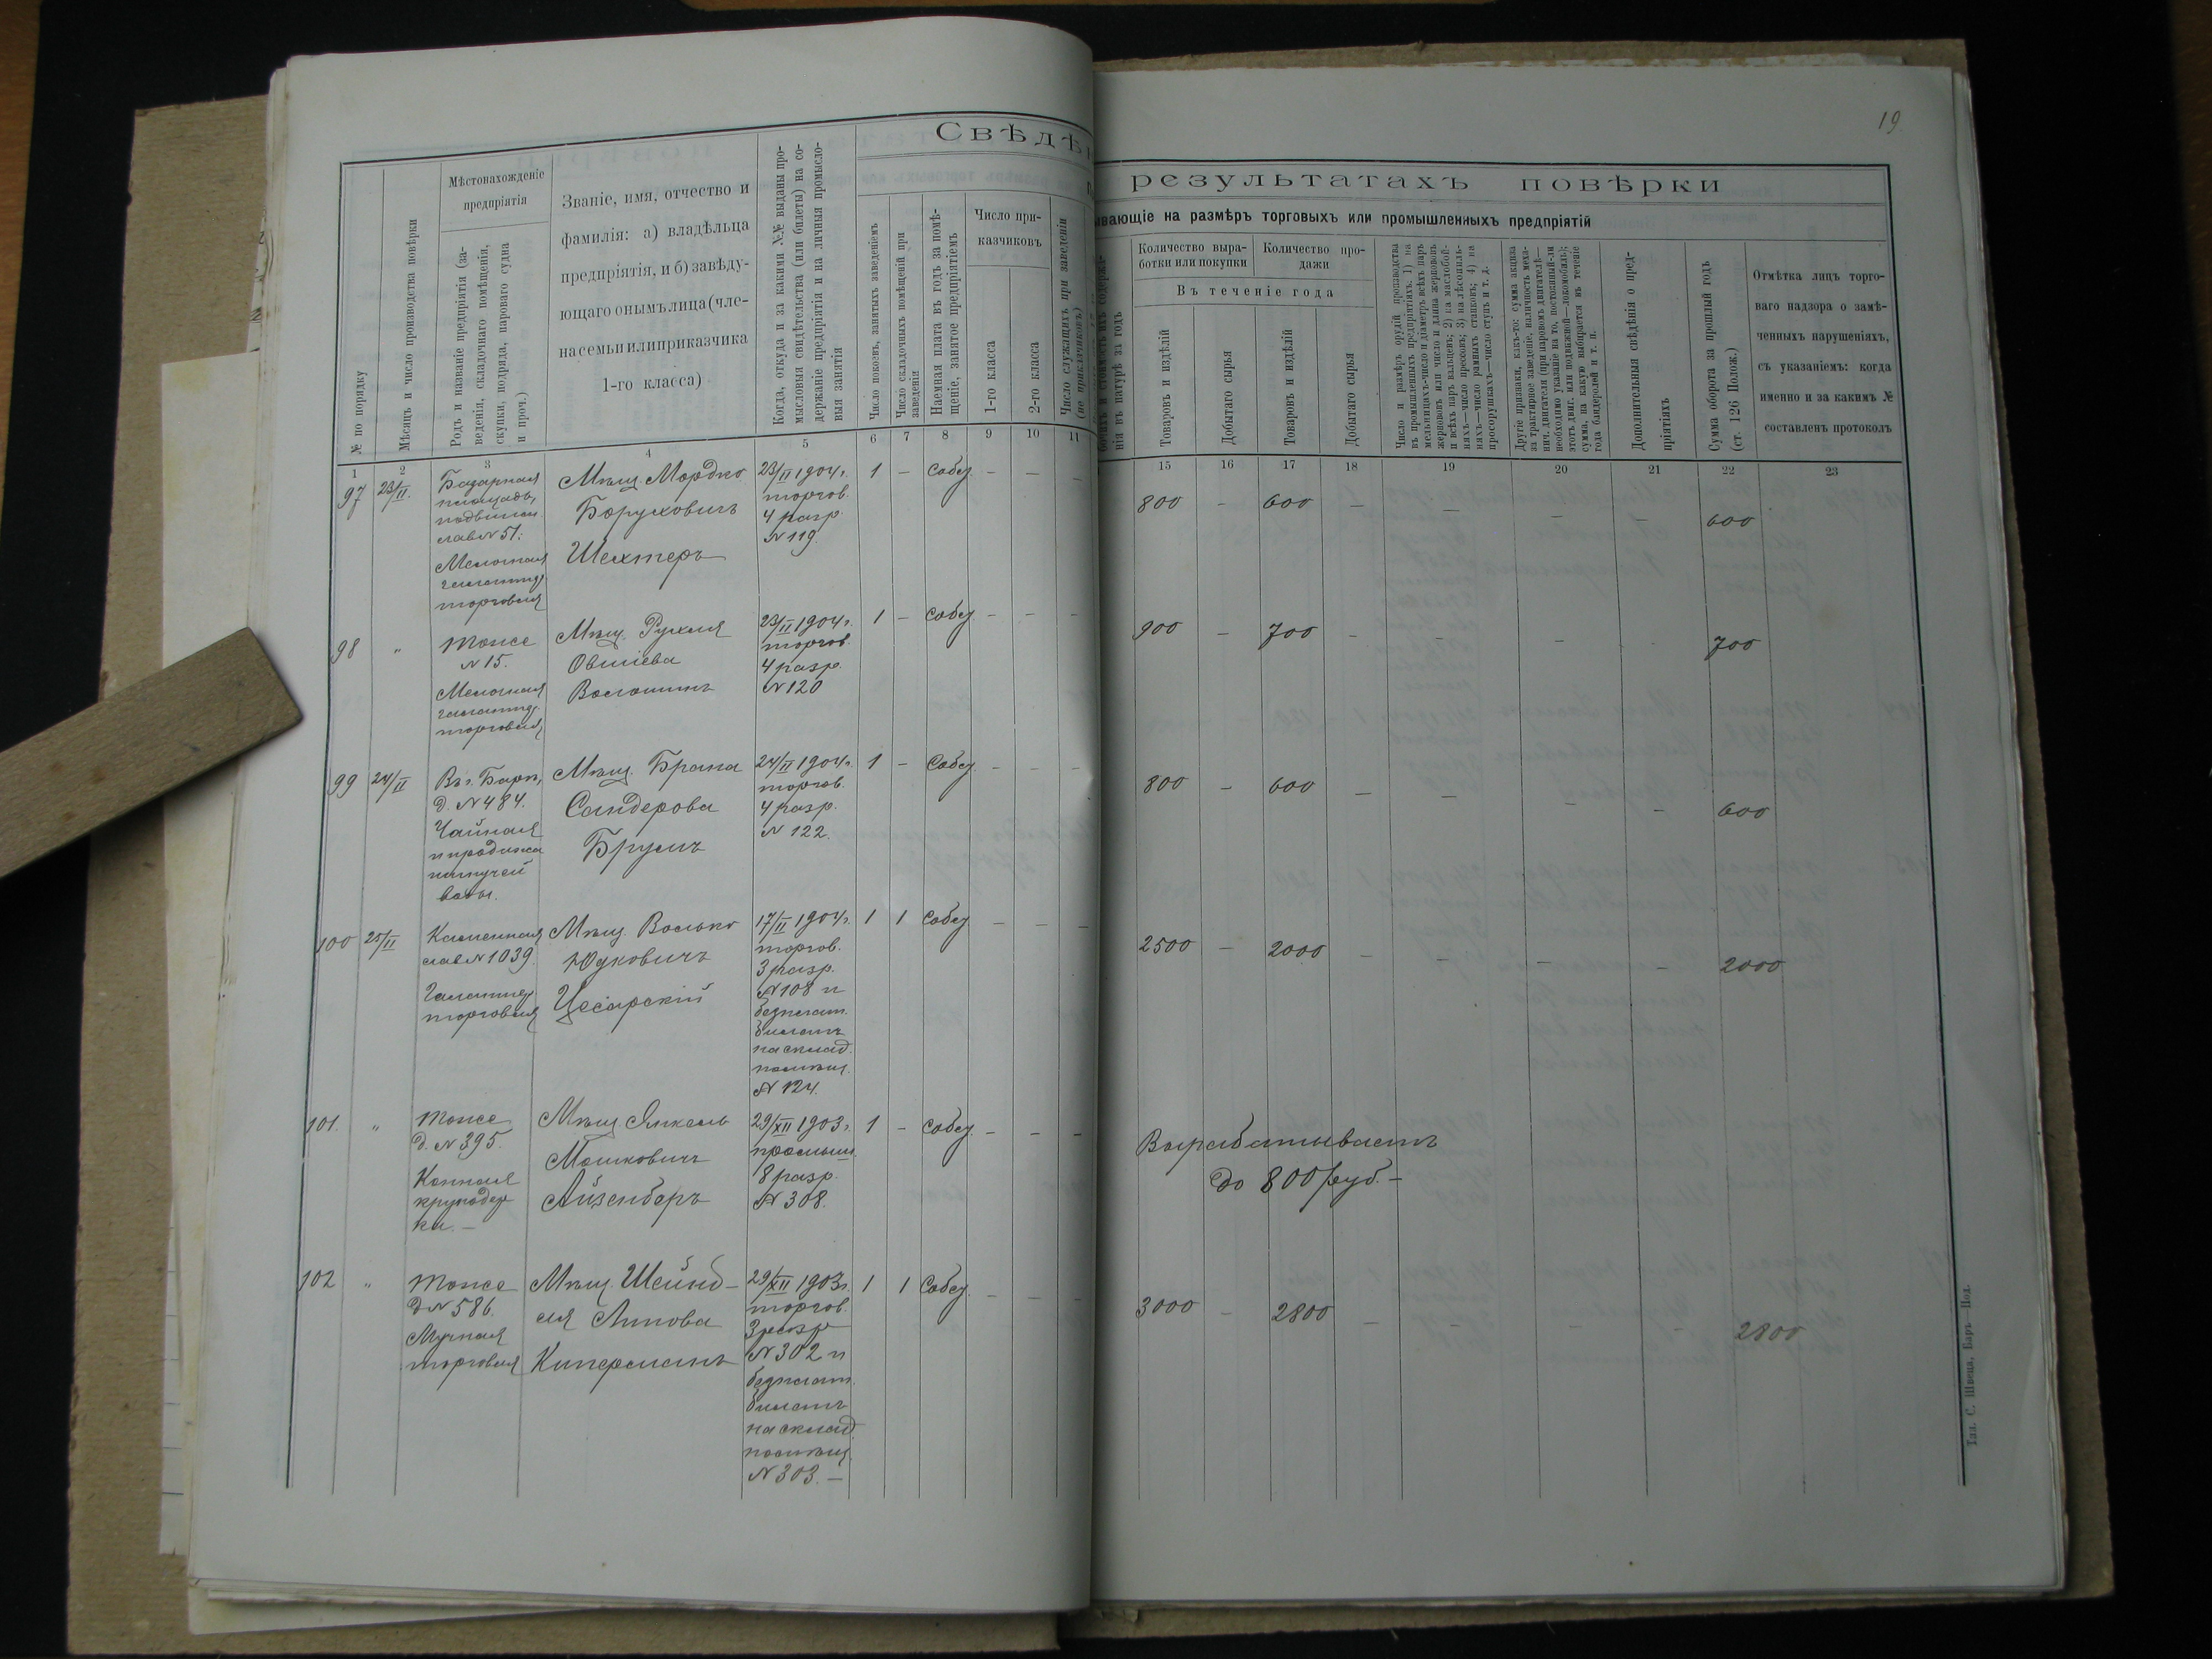 19
Свѣдѣн
результатахъ повѣрки
ывающіе на размѣръ торговыхъ или промышленныхъ предпріятій
№ по порядку
Мѣсяцъ и число производства повѣрки
Мѣстонахожденіе
предпріятія
Родъ и названіе предпріятія (за-
веденія, складочнаго помѣщенія,
скупки, подряда, пароваго судна
и проч.)
Званіе, имя, отчество и
фамилія: а) владѣльца
предпріятія, и б) завѣду-
ющаго онымъ лица (чле-
на семьи или приказчика
1-го класса)
Когда, откуда и за какими №№ выданы про-
мысловыя свидѣтельства (или билеты) на со-
держаніе предпріятія и на личныя промысло-
выя занятія
Число покоевъ, занятыхъ заведеніемъ
Число складочныхъ помѣщеній при
заведеніи
Наемная плата въ годъ за помѣ-
щеніе, занятое предпріятіемъ
Число при-
казчиковъ
1-го класса
2-го класса
Число служащихъ при заведеніи
(не приказчиковъ)
нія въ натурѣ за годъ
Количество выра-
ботки или покупки
Количество про-
дажи
Въ теченіе года
Товаровъ и издѣлій
Добытаго сырья
Товаровъ и издѣлій
Добытаго сырья
Число и размѣръ орудій производства
въ промышленныхъ предпріятіяхъ: 1) на
мельницахъ—число и діаметръ всѣхъ паръ
жернововъ или число и длина жернововъ
и всѣхъ паръ вальцевъ; 2) на маслобой-
няхъ—число прессовъ; 3) на лѣсопиль-
няхъ—число рамныхъ станковъ; 4) на
просорушкахъ—число ступъ и т. д.
Другіе признаки, какъ-то: сумма акциза
за трактирное заведеніе, наличность меха-
нич. двигателя (при паровомъ двигателѣ—
необходимо указаніе на то, постоянный-ли
этотъ двиг. или подвижной—локомобиль);
сумма, на какую выбирается въ теченіе
года бандеролей и т. п.
Дополнительныя свѣдѣнія о пред-
пріятіяхъ
Сумма оборота за прошлый годъ
(ст. 126 Полож.)
Отмѣтка лицъ торго-
ваго надзора о замѣ-
ченныхъ нарушеніяхъ,
съ указаніемъ: когда
именно и за какимъ №
составленъ протоколъ
1 2 3 4 5 6 7 8 9 10 11 15 16 17 18 19 20 21 22 23
97 23/II.
Базарная
площадь,
лав № 51.
Мелочная
галантер.
торговля
Мѣщ. Мордко
Боруховичъ
Шехтеръ
23/II 1904 г.
торгов.
4 разр.
№ 119.
1 – Собст. – – – 800 – 600 – – – – 600
98 „
Тоже
№ 15.
Мелочная
галантер.
торговля
Мѣщ. Рухля
Овшіева
Волошинъ
23/II 1904 г.
торгов.
4 разр.
№ 120
1 – Собст. – – – 900 – 700 – – – – 700
99 24/II
Въ г. Барѣ,
д. № 484.
Чайная
и продажа
кипучей
воды.
Мѣщ. Брана
Сандерова
Брумъ
24/II 1904 г.
торгов.
4 разр.
№ 122.
1 – Собст. – – – 800 – 600 – – – – 600
100 25/II
Каменная
лав № 1039.
Галантер
торговля
Мѣщ. Волько
Юдковичъ
Цесарскій
17/II 1904 г.
торгов.
3 разр.
№ 108 и
безплат.
билетъ
на склад.
помѣщ.
№ 124.
1 1 Собст. – – – 2500 – 2000 – – – – 2000
101. „
Тоже
д. № 395.
Конная
круподер
ка. –
Мѣщ. Янкель
Мошковичъ
Айзенберъ
29/XII 1903 г.
промышл.
8 разр.
№ 308.
1 – Собст. – – –
Вырабатываетъ
до 800 руб. –
102 „
Тоже
д № 586.
Мучная
торговля
Мѣщ. Шейнд–
ля Липова
Киперманъ
29/XII 1903 г.
торгов.
3 разр
№ 302 и
безплат.
билетъ
на склад.
помѣщ.
№ 303. –
1 1 Собст. – – – 3000 – 2800 – – – – 2800
Тип. С. Швеца, Баръ—Под.